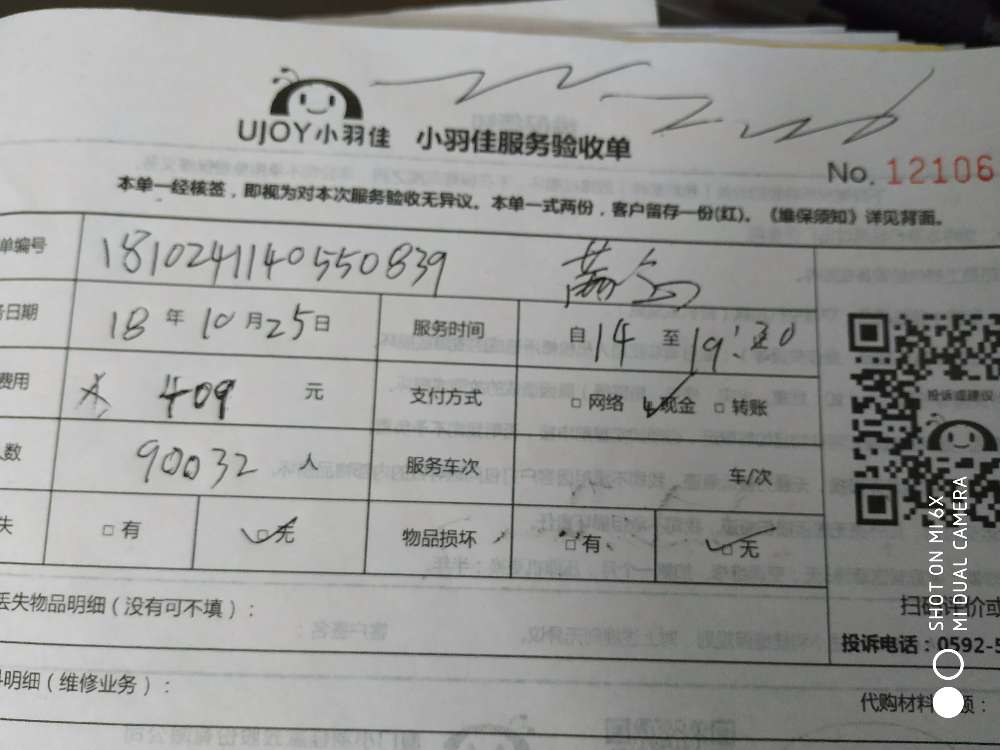 UJOY小羽佳 小羽佳服务验收单
No. 12106
本单一经核签，即视为对本次服务验收无异议。本单一式两份，客户留存一份(红)。《维保须知》详见背面。
单编号 1810241140550839
务日期 18 年 10 月 25 日 服务时间 自 14 至 19:30
费用 409 元 支付方式 □ 网络 ✓ 现金 □ 转账
人数 90032 人 服务车次 车/次
失 □ 有 ✓ 无 物品损坏 □ 有 ✓ □ 无
投诉或建议
丢失物品明细（没有可不填）：
扫码评价或
投诉电话：0592-5
料明细（维修业务）：
代购材料 额：
SHOT ON MI 6X
MI DUAL CAMERA